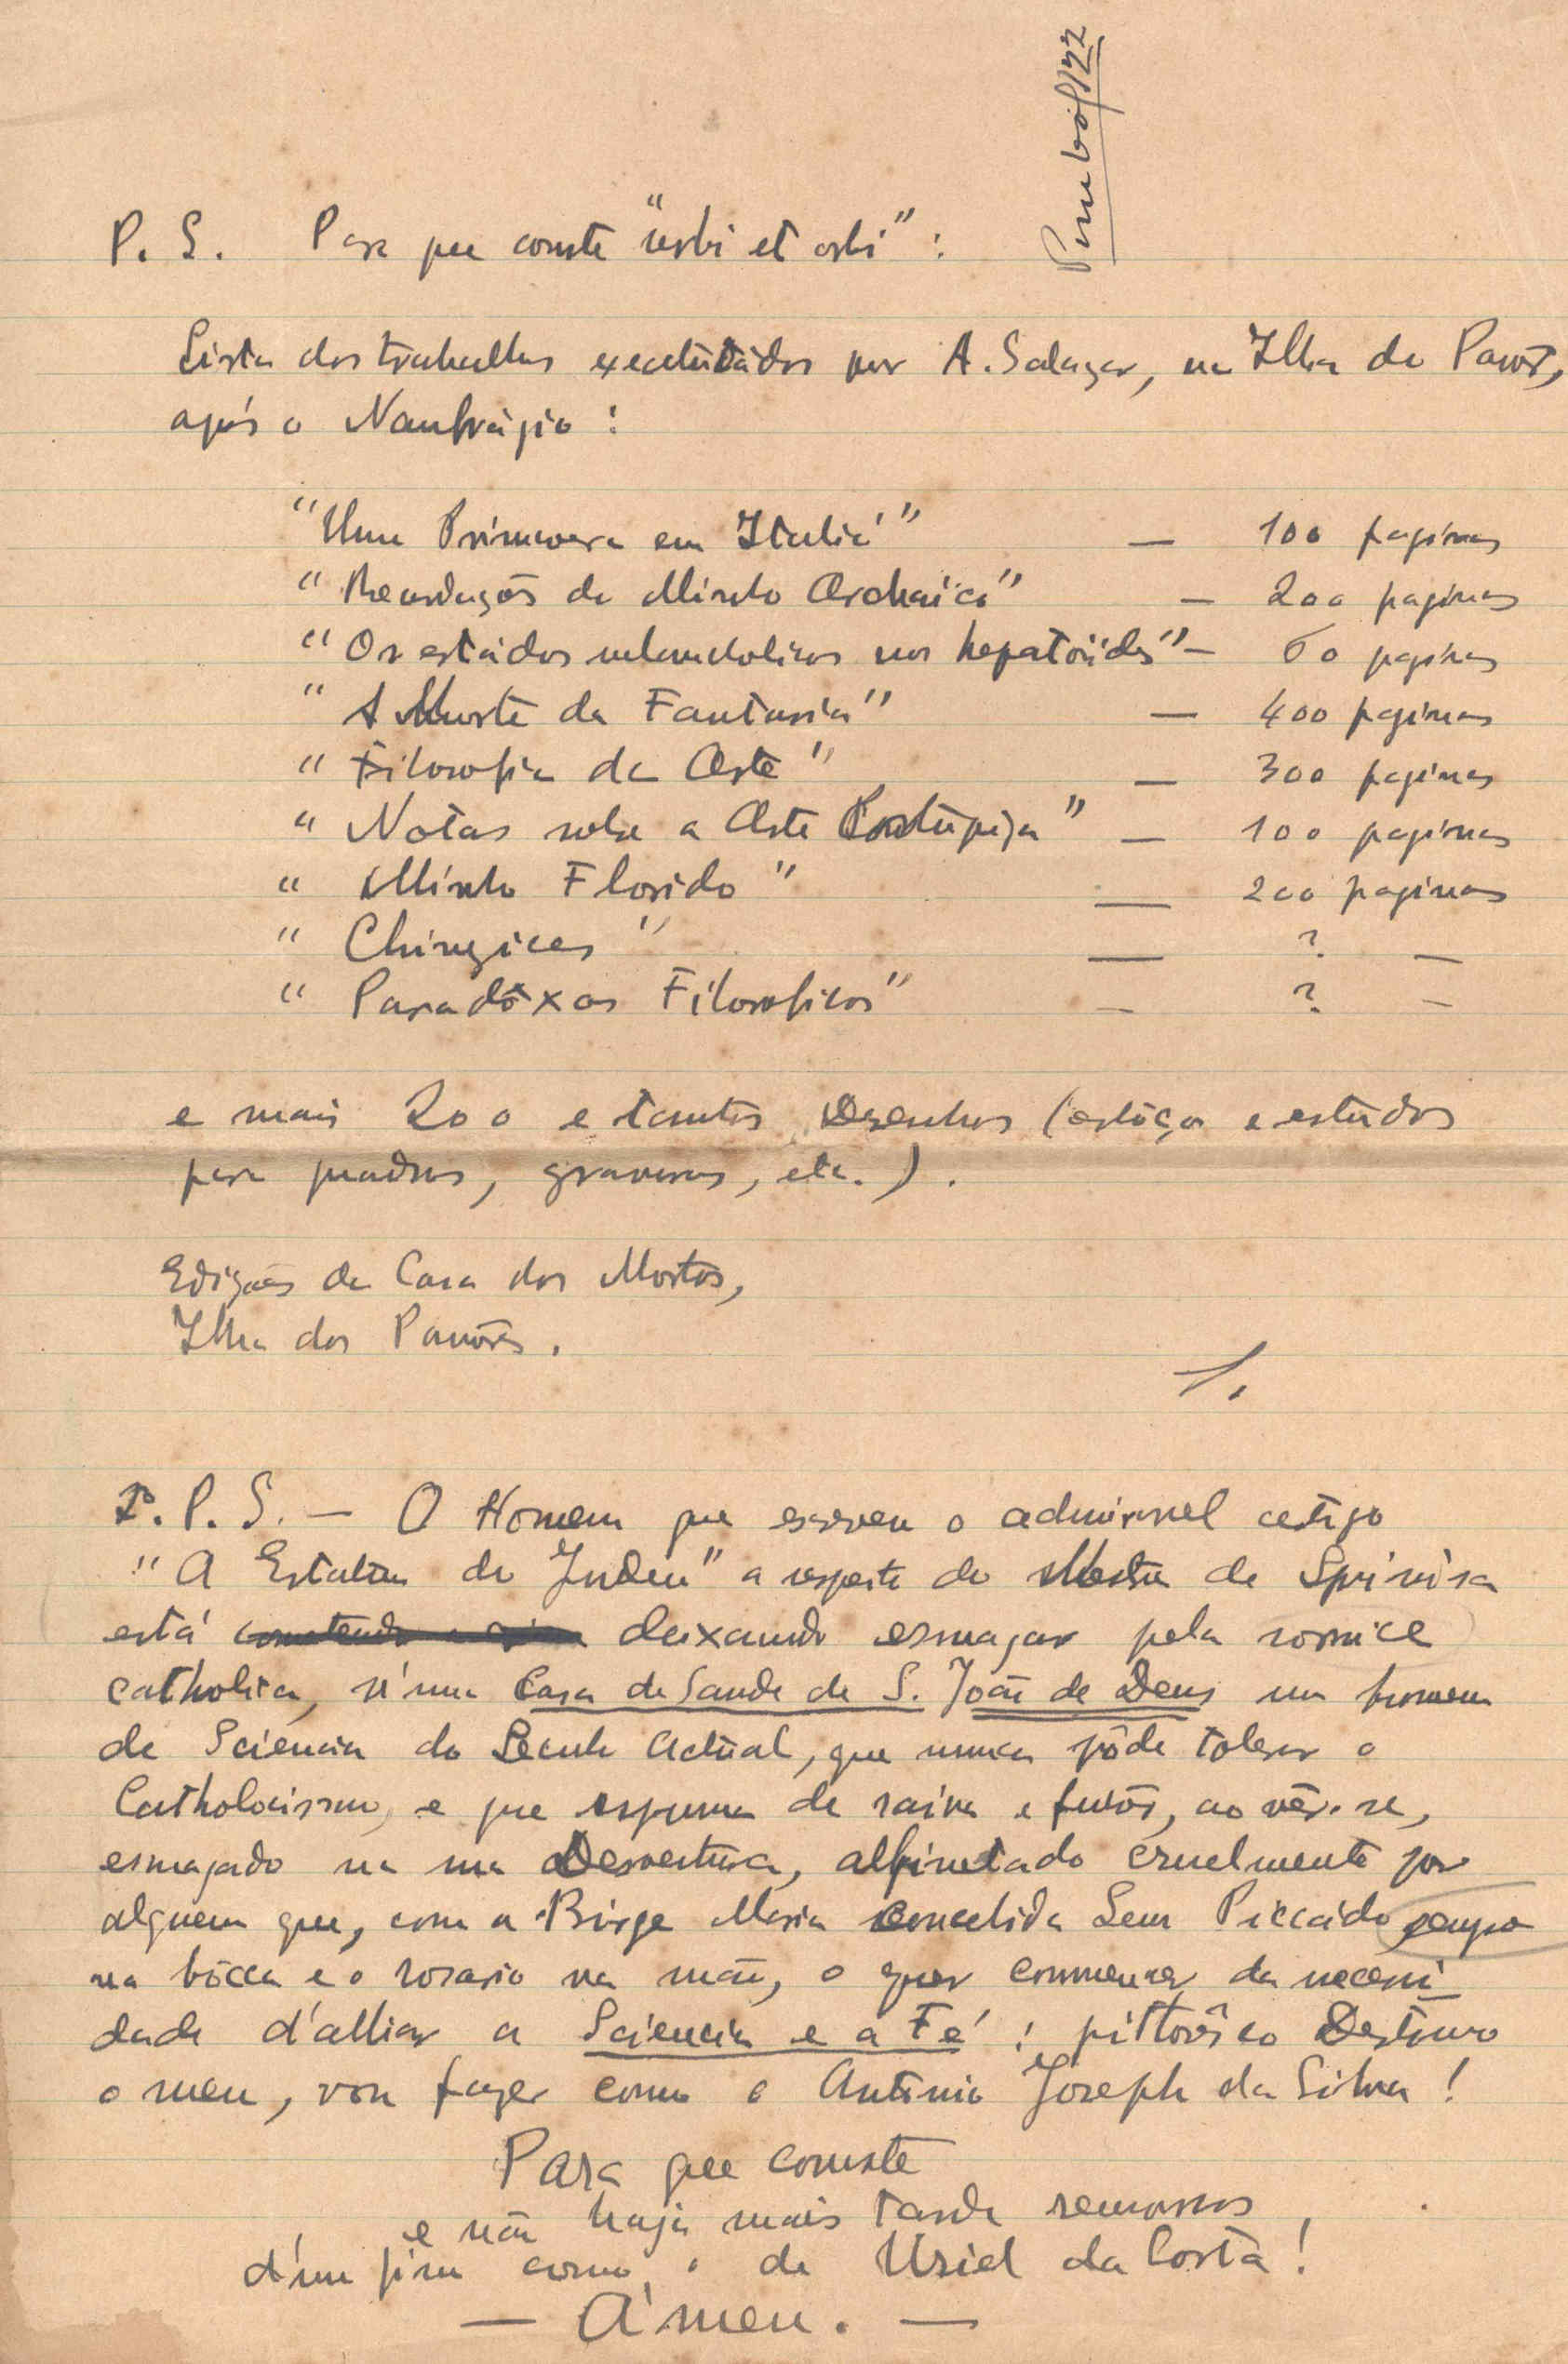 P. S. Para que conste "urbi et orbi" :
Lista dos trabalhos executádos por A. Salazar, na Ilha do Pavôr,
após o Naufrágio :
"Uma Primavera em Italia" — 100 paginas
"Recordações do Minho Archaico" — 200 paginas
"Os estádos melancholicos nos hepatóides" — 60 paginas
"A Morte da Fantasia" — 400 paginas
"Filosofia da Arte" — 300 paginas
"Notas sobre a Arte Portuguêza" — 100 paginas
"Minho Florido" — 200 paginas
"Chinezices" — ? —
"Paradôxos Filosoficos" — ? —
e mais 200 e tantos Desenhos (esbôços e estudos
para quadros, gravuras, etc.).
Edições da Casa dos Mortos,
Ilha dos Pavôres.
S.
P. S. — O Homem que escreveu o admiravel artigo
"A Estatua do Judeu" a respeito do Mestre de Spinósa
está deixando esmagar pela
catholica, n'uma Casa de Saude de S. João de Deus um homem
de Sciencia do Seculo Actual, que nunca pôde tolerar o
Catholocismo, e que espuma de raiva e furôr, ao vêr-se,
esmagado na sua Desventura, alfinetado cruelmente por
alguem que, com a Birge Maria Concebida Sem Piccádo sempre
na bôcca e o rosario na mão, o quer convencer da necessi
dade d'alliar a Sciencia e a Fé ! pittorêsco Destino
o meu, vou fazer como o Antonio Joseph da Silva !
Para que conste
e não haja mais tarde remorsos
d'um fim como o de Uriel da Costa !
— Ámen. —